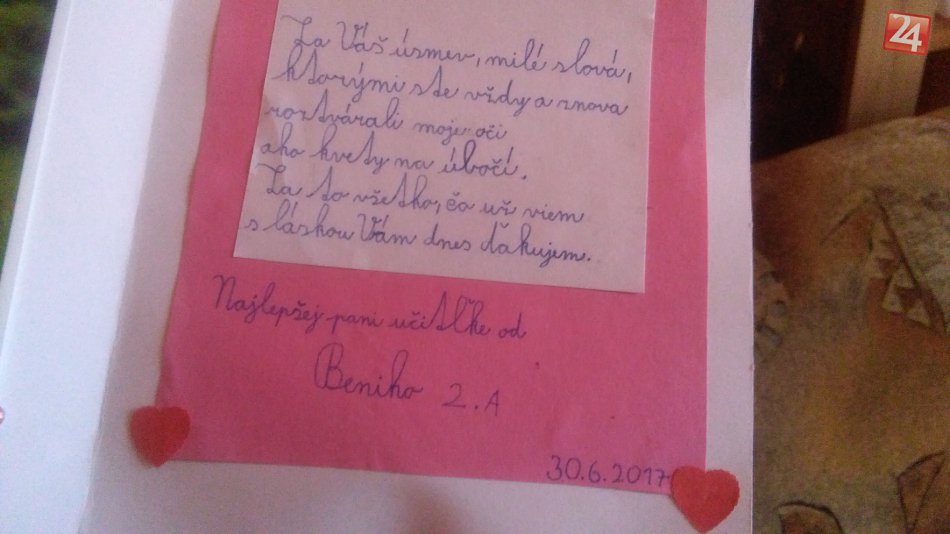 24
Za Váš úsmev, milé slová,
ktorými ste vždy a znova
roztvárali moje oči
ako kvety na úbočí.
Za to všetko, čo už viem
s láskou Vám dnes ďakujem.
Najlepšej pani učiteľke od
Beniho 2.A
30.6.2017